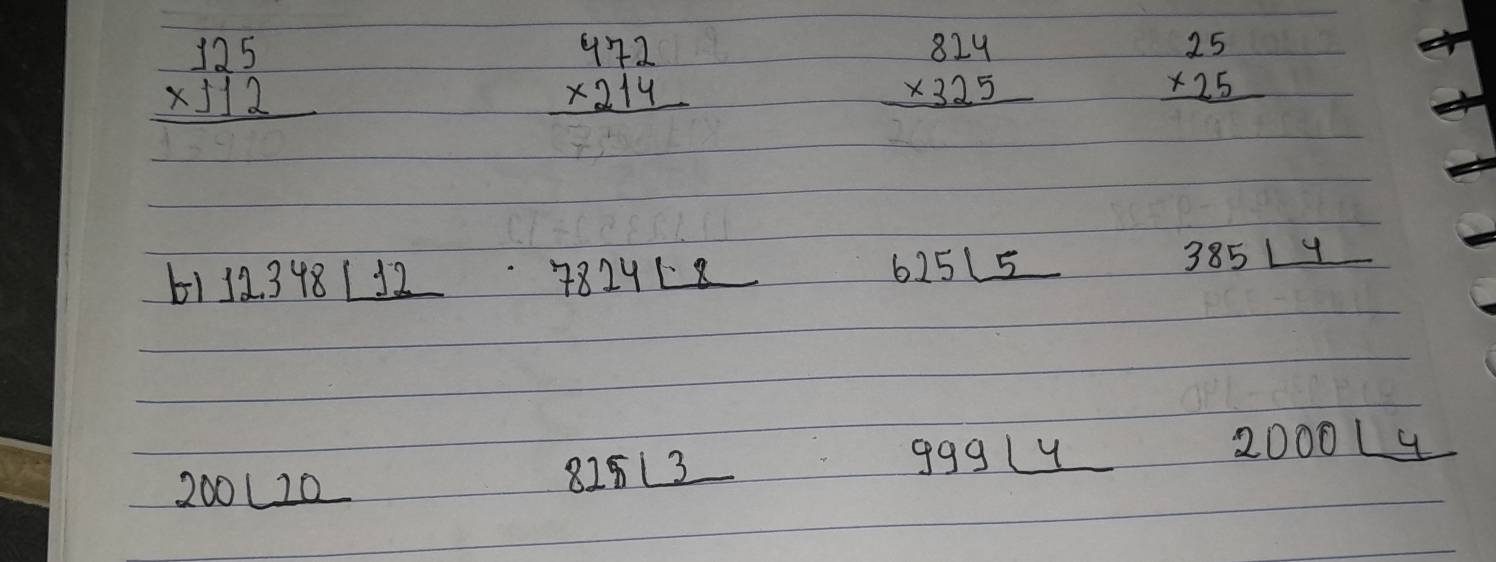 125 472 824 25
×112 ×214 ×325 ×25
b) 12.348 | 12 7824 | 8 625 | 5 385 | 4
200 | 20 825 | 3 999 | 4 2000 | 4